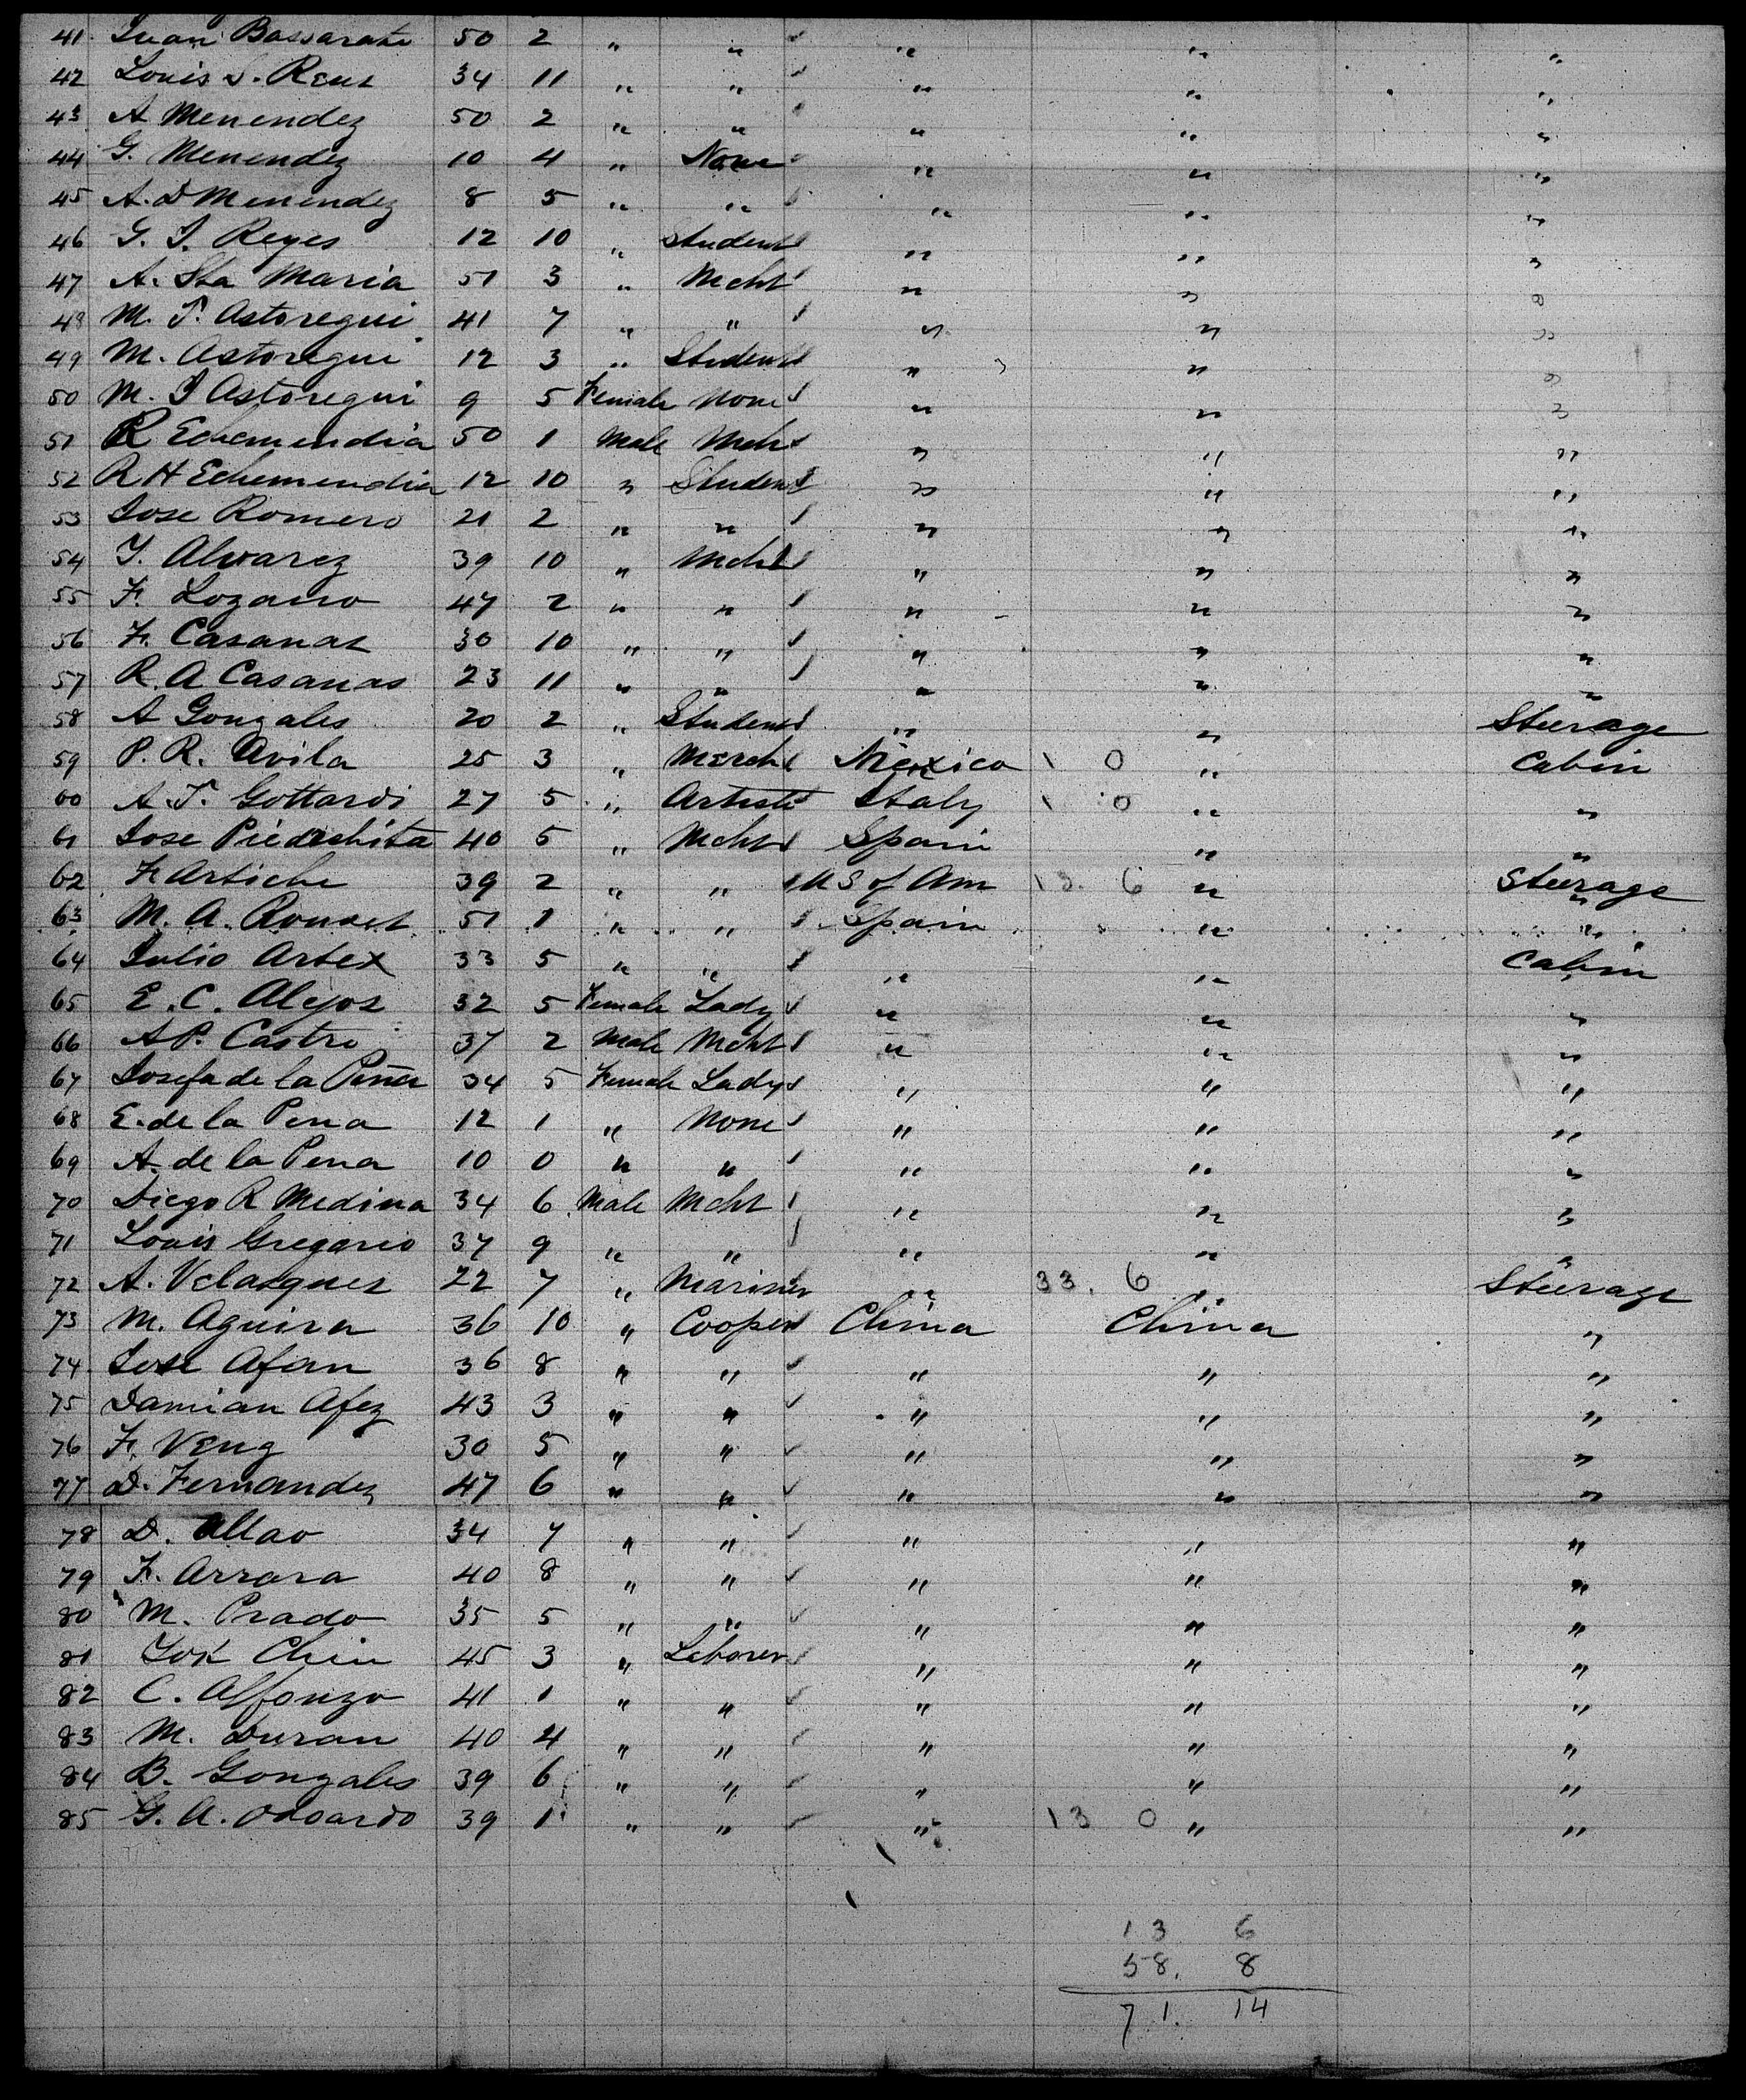 41 Juan Bassarate 50 2 " " " " "
42 Louis S. Reus 34 11 " " " " "
43 A Menendez 50 2 " " " " "
44 G. Menendez 10 4 " None " " "
45 A. D Menendez 8 5 " " " " "
46 G. J. Reyes 12 10 " Student " " "
47 A. Sta Maria 51 3 " Mcht " " "
48 M. T. Astoregui 41 7 " " " " "
49 M. Astoregui 12 3 " Student " " "
50 M. J Astoregui 9 5 Female None " " "
51 R Echemendia 50 1 Male Mcht " " "
52 R H Echemendia 12 10 " Student " " "
53 Jose Romero 21 2 " " " " "
54 Y. Alvarez 39 10 " Mcht " " "
55 F. Lozano 47 2 " " " " "
56 F. Casanas 30 10 " " " " "
57 R. A Casanas 23 11 " " " " "
58 A Gonzales 20 2 " Student " " Steerage
59 P. R. Avila 25 3 " Mercht Mexico 1 0 " Cabin
60 A. T. Gottardi 27 5 " Artist Italy 1 0 " "
61 Jose Piedrahita 40 5 " Mcht Spain " "
62 F. Artiche 39 2 " " U S of Am 13. 6 " Steerage
63 M. A. Rouset 51 1 " " Spain " "
64 Julio Artex 33 5 " " " " Cabin
65 E. C. Alejos 32 5 Female Lady " " "
66 A P. Castro 37 2 Male Mcht " " "
67 Josefa de la Peña 34 5 Female Lady " " "
68 E. de la Pena 12 1 " None " " "
69 A. de la Pena 10 0 " " " " "
70 Diego R Medina 34 6 Male Mcht " " "
71 Louis Gregario 37 9 " " " " "
72 A. Velasques 22 7 " Mariner " 33. 6 " Steerage
73 M. Aguira 36 10 " Cooper China China "
74 Jose Afan 36 8 " " " " "
75 Damian Afez 43 3 " " " " "
76 F. Veng 30 5 " " " " "
77 D. Fernandez 47 6 " " " " "
78 D. Allao 34 7 " " " " "
79 F. Arrara 40 8 " " " " "
80 M. Prado 35 5 " " " " "
81 Yok Chin 45 3 " Laborer " " "
82 C. Alfonzo 41 1 " " " " "
83 M. Duran 40 4 " " " " "
84 B. Gonzales 39 6 " " " " "
85 G. A. Odoardo 39 1 " " " 13 0 " "
13 6
58. 8
71. 14